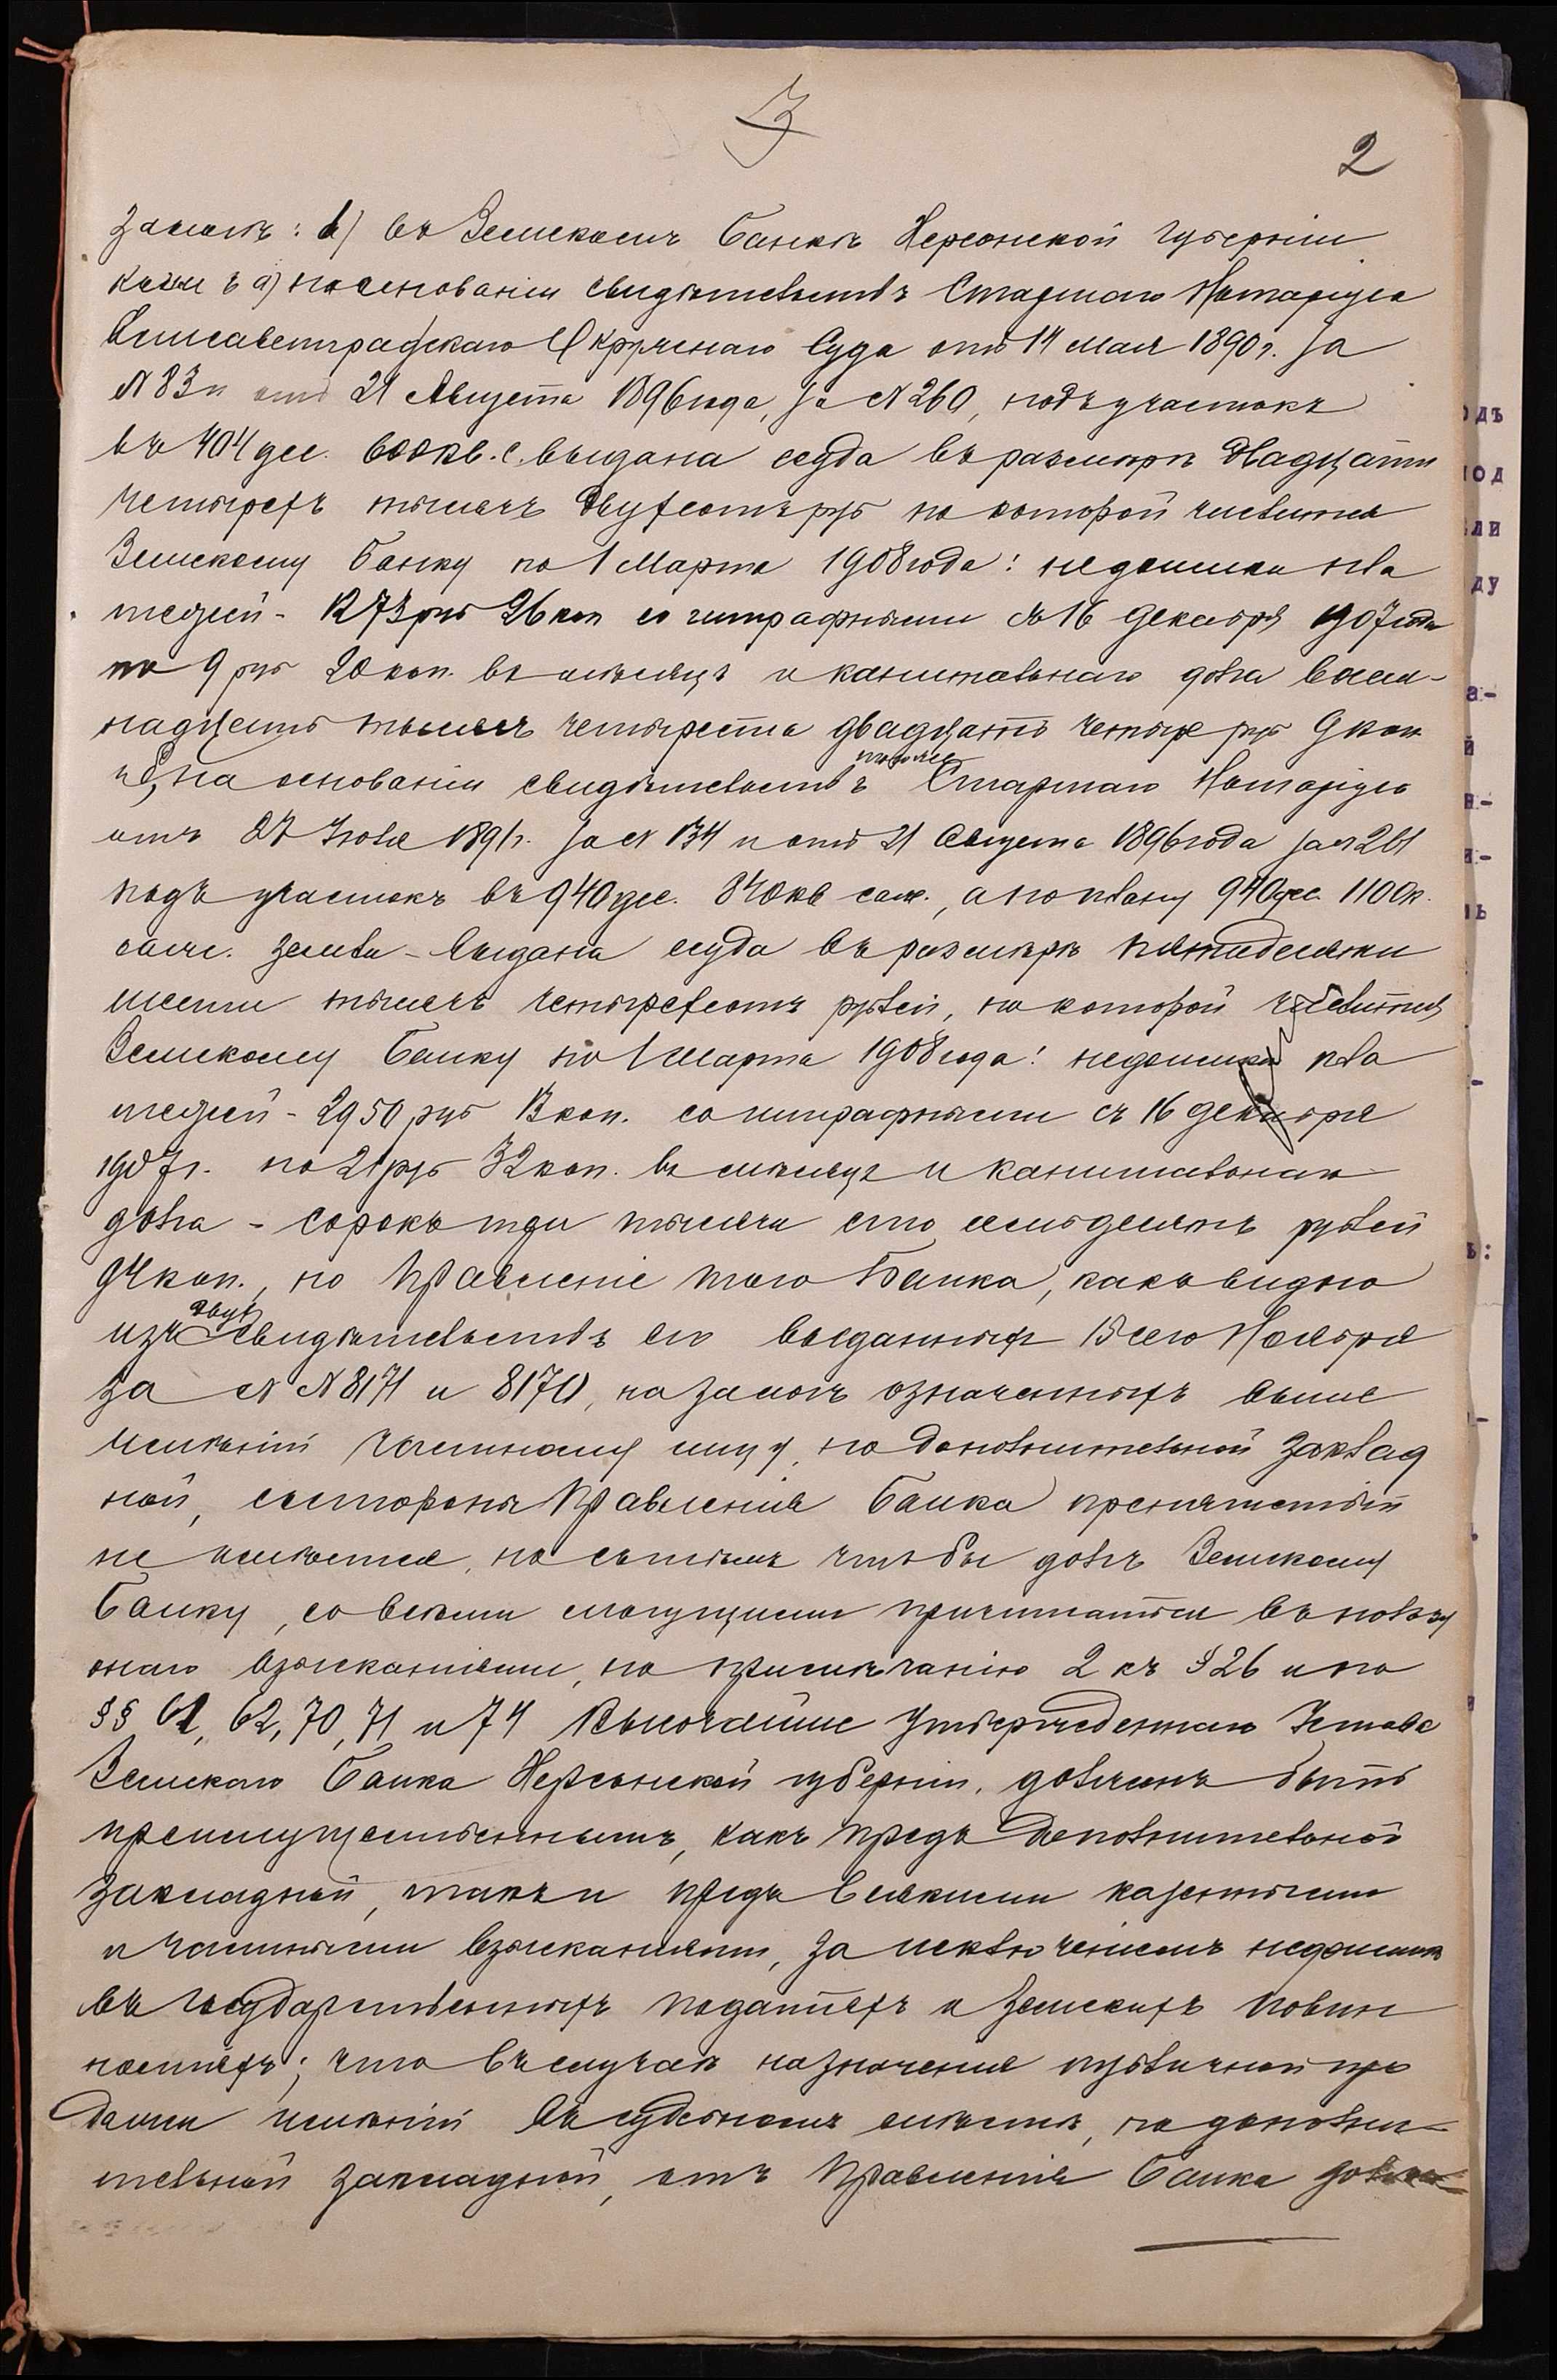 3
2
залогѣ: 1) въ Земскомъ Банкѣ Херсонской губерніи
коимъ а) на основаніи свидѣтельствъ Старшаго Нотаріуса
Елисаветградскаго Окружнаго Суда отъ 14 мая 1890 г. за
N 83 и отъ 21 Августа 1896 года, за N 260, подъ участокъ
въ 404 дес. 600 кв. с. выдана ссуда въ размѣрѣ двадцати
четырехъ тысячъ двухсотъ руб по которой числится
Земскому Банку по 1 Марта 1908 года: недоимки пла
тежей - 1273 руб 26 коп со штрафными съ 16 Декабря 1907 года
по 9 руб 20 коп. въ мѣсяцъ и капитальнаго долга восем-
надцать тысячъ четыреста двадцать четыре руб 9 коп
и б) на основаніи свидѣтельствъ того же Старшаго Нотаріуса
отъ 27 Іюля 1891 г. за N 134 и отъ 21 Августа 1896 года за N 261
подъ участокъ въ 940 дес. 840 кв саж., а по плану 940 дес 1100 к.
саж. земли - выдана ссуда въ размѣрѣ пятидесяти
шести тысячъ четырехсотъ рублей, по которой числится
Земскому Банку по 1 Марта 1908 года: недоимки пла
тежей - 2950 руб 13 коп. со штрафными съ 16 декабря
1907 г. по 21 руб 32 коп. въ мѣсяцъ и капитальнаго
долга - сорокъ три тысячи сто семьдесятъ рублей
94 коп., но Правленіе того Банка, какъ видно
изъ двухъ свидѣтельствъ его выданныхъ 15 сего Ноября
за N N 8171 и 8170, на залогъ означенныхъ выше
имѣній частному лицу, по дополнительной заклад
ной, со стороны Правленія Банка препятствій
не имѣется, но съ тѣмъ чтобы долгъ Земскому
Банку, со всѣми могущими причитаться въ пользу
онаго взысканіями, по примѣчанію 2 къ § 26 и по
§§ 61, 62, 70, 71 и 74 Высочайше утвержденнаго Устава
Земскаго Банка Херсонской губерніи, долженъ быть
преимущественнымъ, какъ предъ дополнительной
закладной, такъ и предъ всякими казенными
и частными взысканіями, за исключеніемъ недоимокъ
въ государственныхъ податяхъ и земскихъ повин
ностяхъ; что въ случаѣ назначенія публичной про
дажи имѣній въ судебномъ мѣстѣ, по дополни-
тельной закладной, отъ Правленія Банка